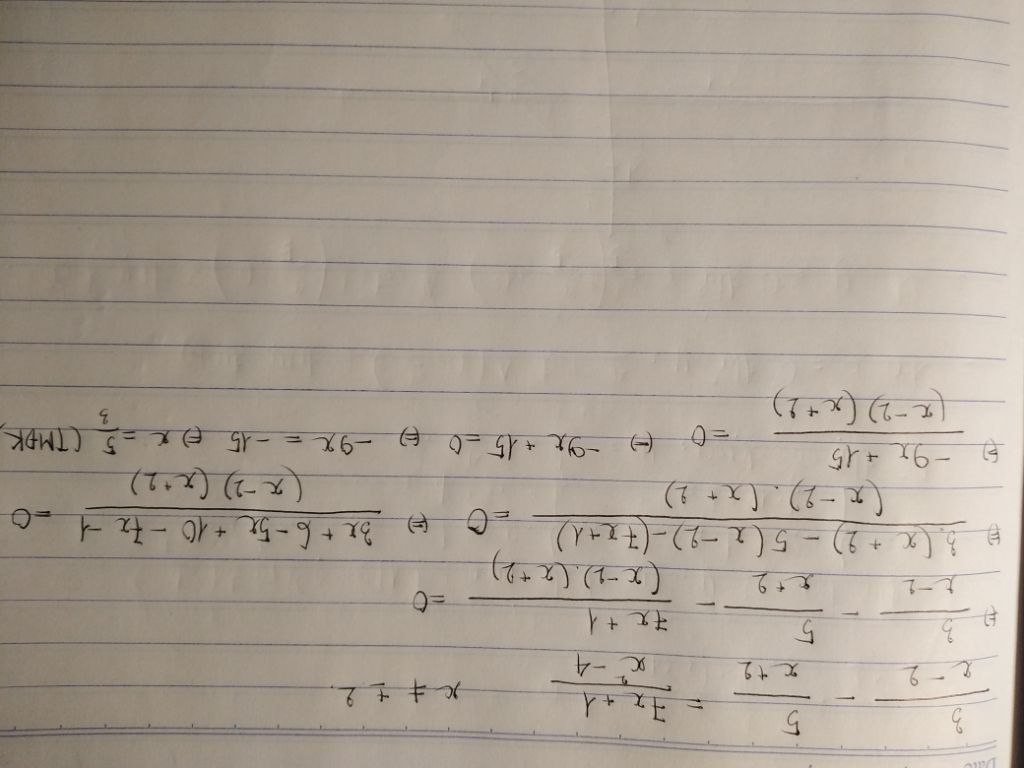 Date
3/(x - 2) - 5/(x + 2) = (7x + 1)/(x² - 4) x ≠ ± 2.
(=) 3/(x - 2) - 5/(x + 2) - (7x + 1)/((x - 2).(x + 2)) = 0
(=) (3.(x + 2) - 5(x - 2) - (7x + 1))/((x - 2).(x + 2)) = 0 (=) (3x + 6 - 5x + 10 - 7x - 1)/((x - 2)(x + 2)) = 0
(=) (-9x + 15)/((x - 2)(x + 2)) = 0 (=) -9x + 15 = 0 (=) -9x = -15 (=) x = 5/3 (TMĐK)